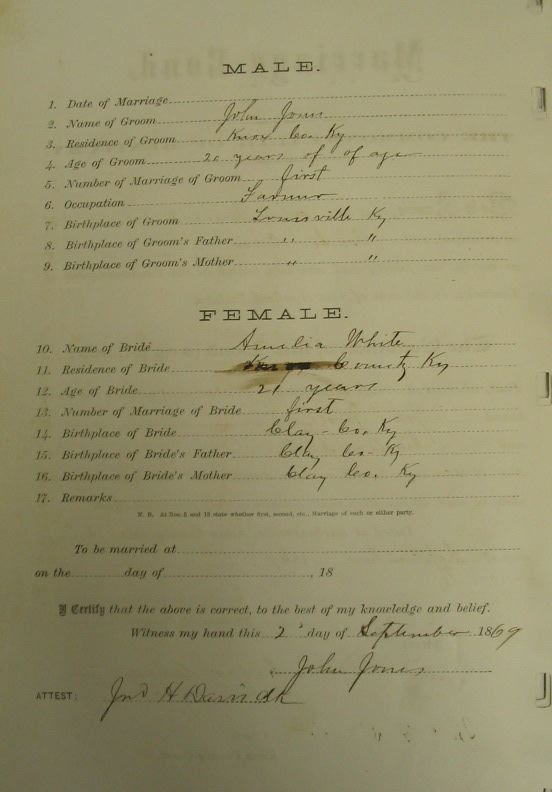 MALE.
1. Date of Marriage
2. Name of Groom John Jones
3. Residence of Groom Knox Co. Ky
4. Age of Groom 20 years of of age
5. Number of Marriage of Groom first
6. Occupation Farmer
7. Birthplace of Groom Louisville Ky
8. Birthplace of Groom's Father " "
9. Birthplace of Groom's Mother " "
FEMALE.
10. Name of Bride Amelia White
11. Residence of Bride County Ky
12. Age of Bride 21 years
13. Number of Marriage of Bride first
14. Birthplace of Bride Clay - Co. Ky
15. Birthplace of Bride's Father Clay Co - Ky
16. Birthplace of Bride's Mother Clay Co. Ky
17. Remarks
N. B. At Nos. 5 and 13 state whether first, second, etc., Marriage of each or either party.
To be married at
on the day of , 18
I Certify that the above is correct, to the best of my knowledge and belief.
Witness my hand this 2 day of September 1869
John Jones
ATTEST: Jno H Davis clk